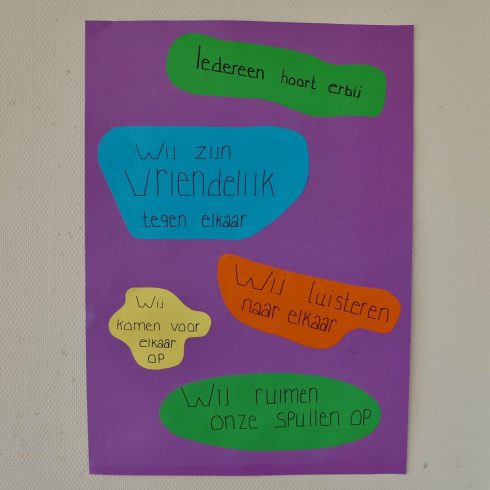 Iedereen hoort erbij
Wij zijn
vriendelijk
tegen elkaar
Wij luisteren
naar elkaar
Wij
komen voor
elkaar
op
Wij ruimen
onze spullen op